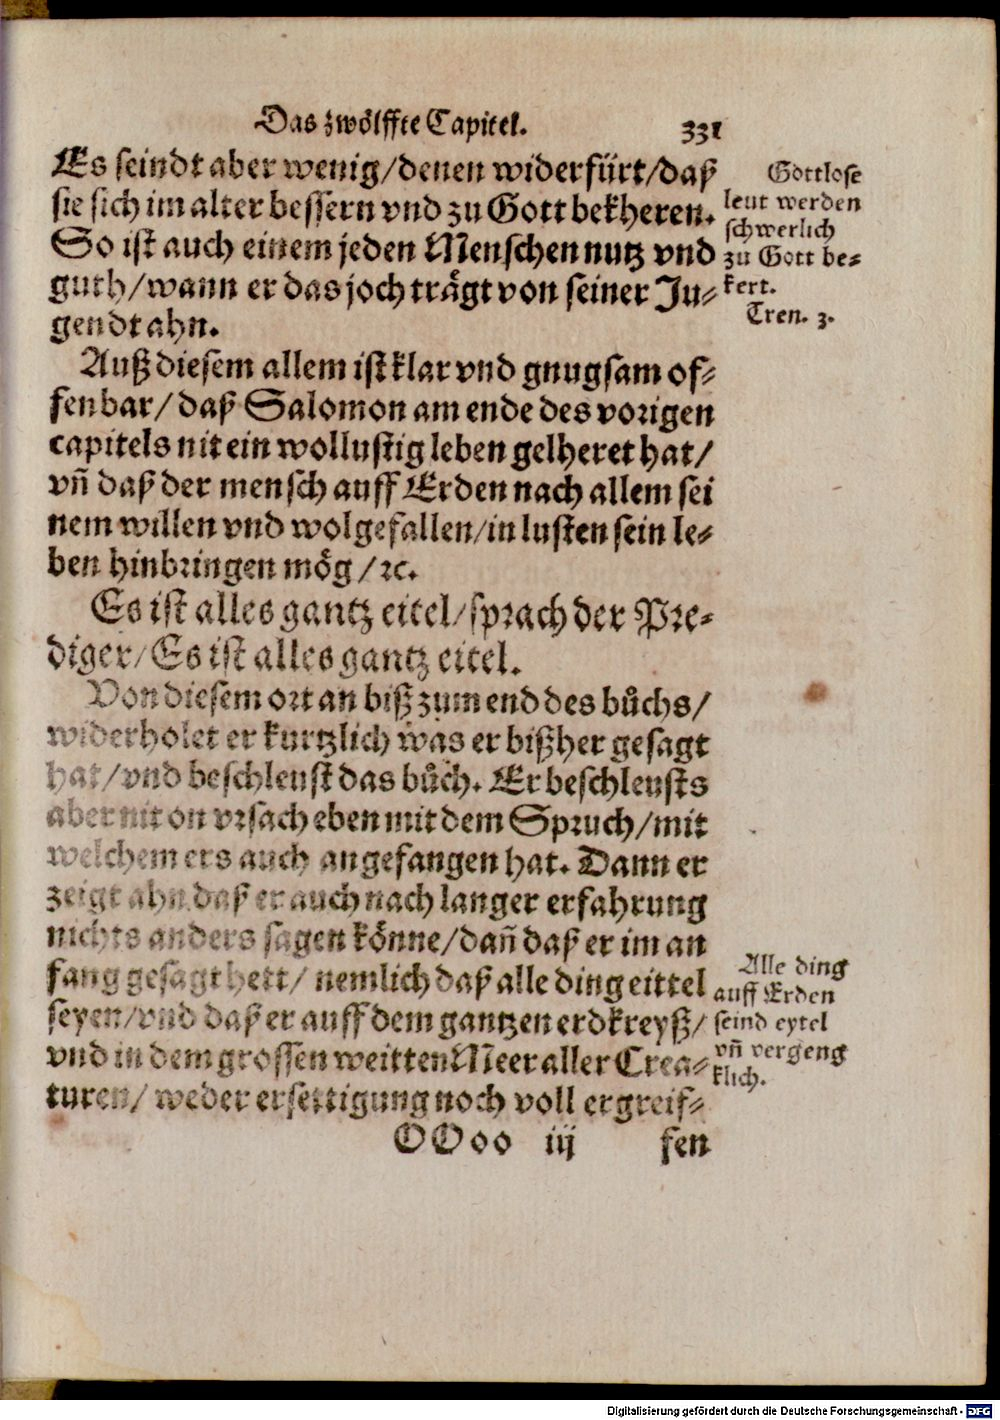 Das zwölffte Capitel. 331
Es seindt aber wenig/denen widerfürt/daß
sie sich im alter bessern vnd zu Gott bekheren.
So ist auch einem jeden Menschen nutz vnd
guth/wann er das joch trägt von seiner Ju⸗
gendt ahn.
Gottlose
leut werden
schwerlich
zu Gott be⸗
kert.
Tren. 3.
Auß diesem allem ist klar vnd gnugsam of⸗
fenbar/daß Salomon am ende des vorigen
capitels nit ein wollustig leben gelheret hat/
vñ daß der mensch auff Erden nach allem sei
nem willen vnd wolgefallen/in lusten sein le⸗
ben hinbringen mög/ꝛc.
Es ist alles gantz eitel/sprach der Pre⸗
diger/Es ist alles gantz eitel.
Von diesem ort an biß zum end des bůchs/
widerholet er kurtzlich was er bißher gesagt
hat/vnd beschleust das bůch. Er beschleusts
aber nit on vrsach eben mit dem Spruch/mit
welchem ers auch angefangen hat. Dann er
zeigt ahn daß er auch nach langer erfahrung
nichts anders sagen könne/dañ daß er im an
fang gesagt hett/ nemlich daß alle ding eittel
seyen/vnd daß er auff dem gantzen erdkreyß/
vnd in dem grossen weitten Meer aller Crea⸗
turen/ weder ersettigung noch voll ergreif⸗
Alle ding
auff Erden
seind eytel
vñ vergeng
klich.
OOoo iij fen
Digitalisierung gefördert durch die Deutsche Forschungsgemeinschaft - DFG